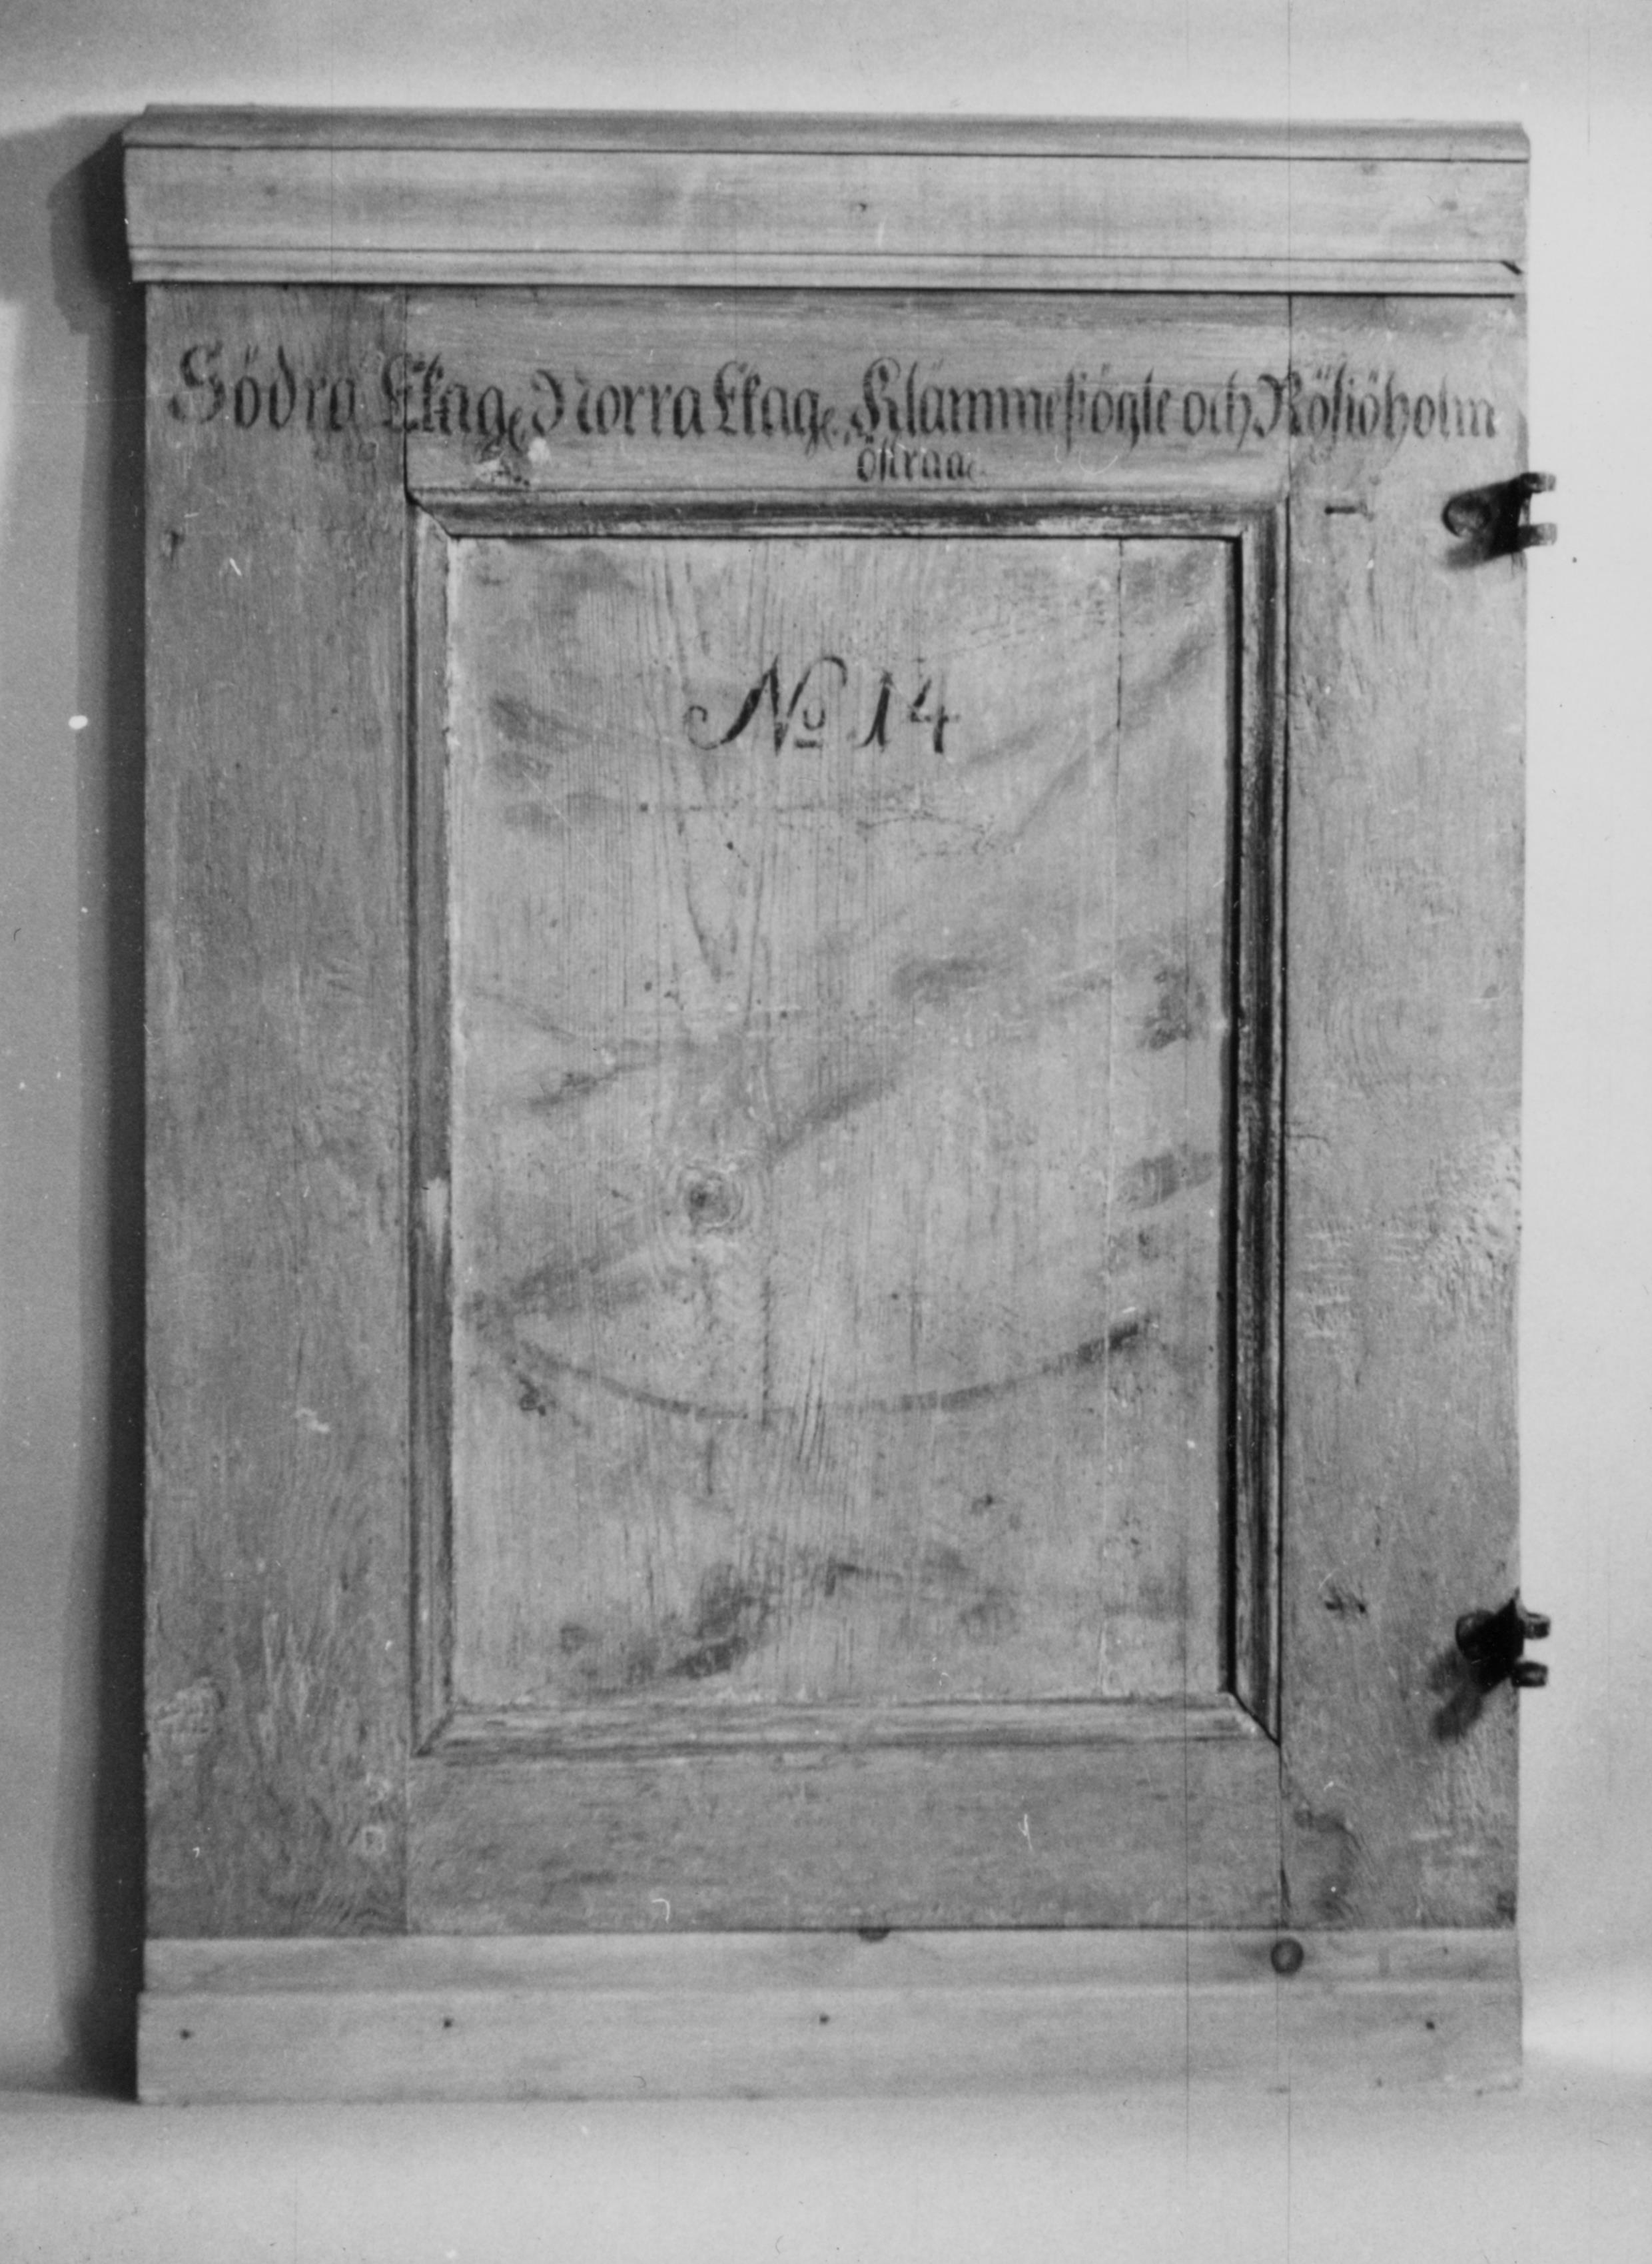 Södra Ekag, Norra Ekag, Klämmesiögle och Rösiöholm
östraa
No 14